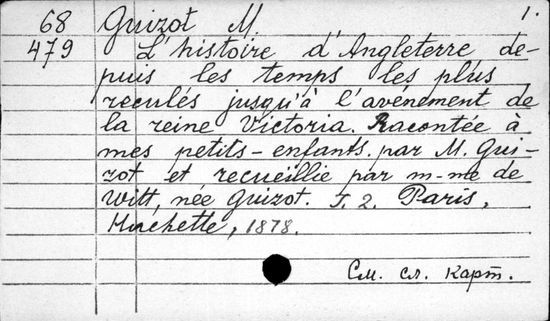 68 Guizot M 1.
479 L'histoire d'Angleterre de-
puis les temps les plus
reculés jusqu'à l'avénement de
la reine Victoria. Racontée à
mes petits-enfants par M. Gui-
zot et recueillie par m-me de
Witt, née Guizot. T. 2. Paris,
Hachette, 1878.
См. сл. карт.